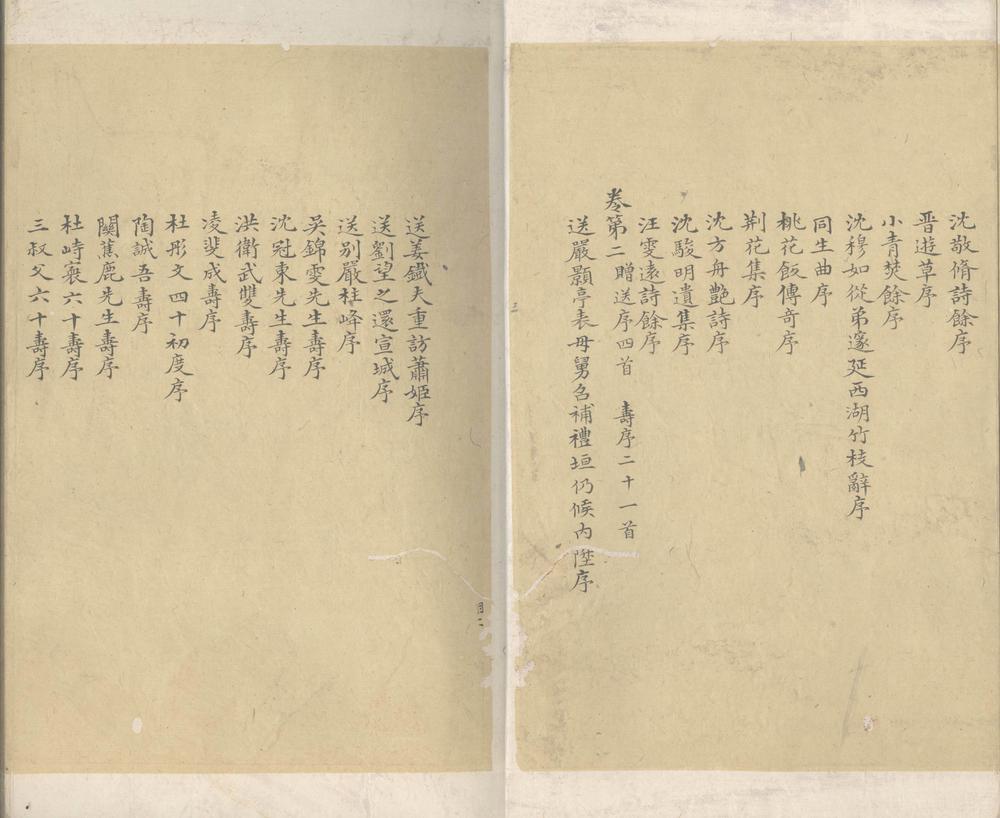 沈敬脩詩餘序
晋遊草序
小青焚餘序
沈穆如從弟邃延西湖竹枝辭序
同生曲序
桃花飯傳奇序
荆花集序
沈方舟艷詩序
沈駿明遺集序
汪雯遠詩餘序
卷第二 贈送序四首 壽序二十一首
送嚴顥亭表母舅召補禮垣仍候内陞序
送姜鐵夫重訪蕭姬序
送劉望之還宣城序
送别嚴柱峰序
吳錦雯先生壽序
沈冠東先生壽序
洪衛武雙壽序
凌斐成壽序
杜彤文四十初度序
陶誠吾壽序
闞蕉鹿先生壽序
杜峙襄六十壽序
三叔父六十壽序